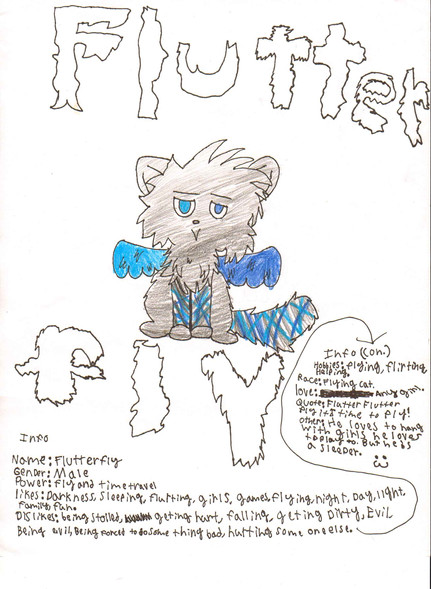 Flutter
fly
Info
Name: Flutterfly
Gender: Male
Power: Fly and time travel
likes: Darkness, sleeping, flurting, girls, games, flying, night, Day, light,
Family, fun.
Dislikes: being stolled, getting hurt, falling, getting Dirty, Evil
Being evil, Being Forced to do some thing bad, hurting some one else.
Info (con.)
Hobbies: flying, flirting
Helping.
Race: Flying cat.
love: Any
Quote: Flutter Flutter
Fly it's time to Fly!
other: He loves to hang
with girls he loves
to play to. But he's
a sleeper.